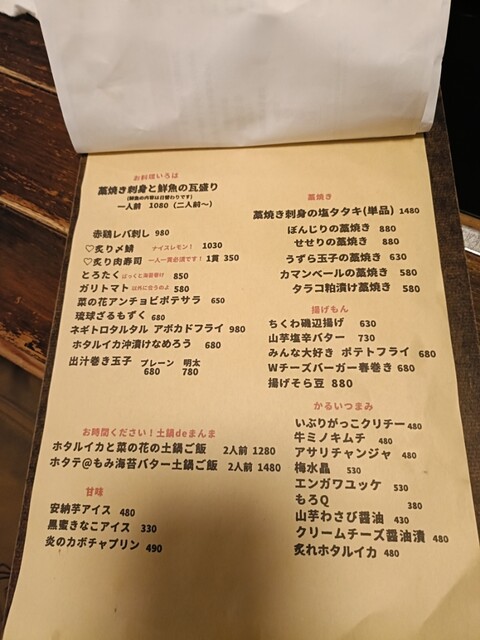 お料理いろは
藁焼き刺身と鮮魚の瓦盛り
(鮮魚の内容は日替わりです)
一人前 1080 (二人前～)
赤鶏レバ刺し 980
♡炙り〆鯖 ナイスレモン! 1030
♡炙り肉寿司 一人一貫必須です! 1貫 350
とろたく ぱっくと海苔巻け 850
ガリトマト 以外に合うのよ 580
菜の花アンチョビポテサラ 650
琉球ざるもずく 680
ネギトロタルタル アボカドフライ 980
ホタルイカ沖漬けなめろう 680
出汁巻き玉子 プレーン 明太
680 780
お時間ください!土鍋deまんま
ホタルイカと菜の花の土鍋ご飯 2人前 1280
ホタテ@もみ海苔バター土鍋ご飯 2人前 1480
甘味
安納芋アイス 480
黒蜜きなこアイス 330
炎のカボチャプリン 490
藁焼き
藁焼き刺身の塩タタキ(単品) 1480
ぼんじりの藁焼き 880
せせりの藁焼き 880
うずら玉子の藁焼き 630
カマンベールの藁焼き 580
タラコ粕漬け藁焼き 580
揚げもん
ちくわ磯辺揚げ 630
山芋塩辛バター 730
みんな大好き ポテトフライ 680
Wチーズバーガー春巻き 680
揚げそら豆 880
かるいつまみ
いぶりがっこクリチー 480
牛ミノキムチ 480
アサリチャンジャ 480
梅水晶 530
エンガワユッケ 530
もろQ 380
山芋わさび醤油 430
クリームチーズ醤油漬 480
炙れホタルイカ 480